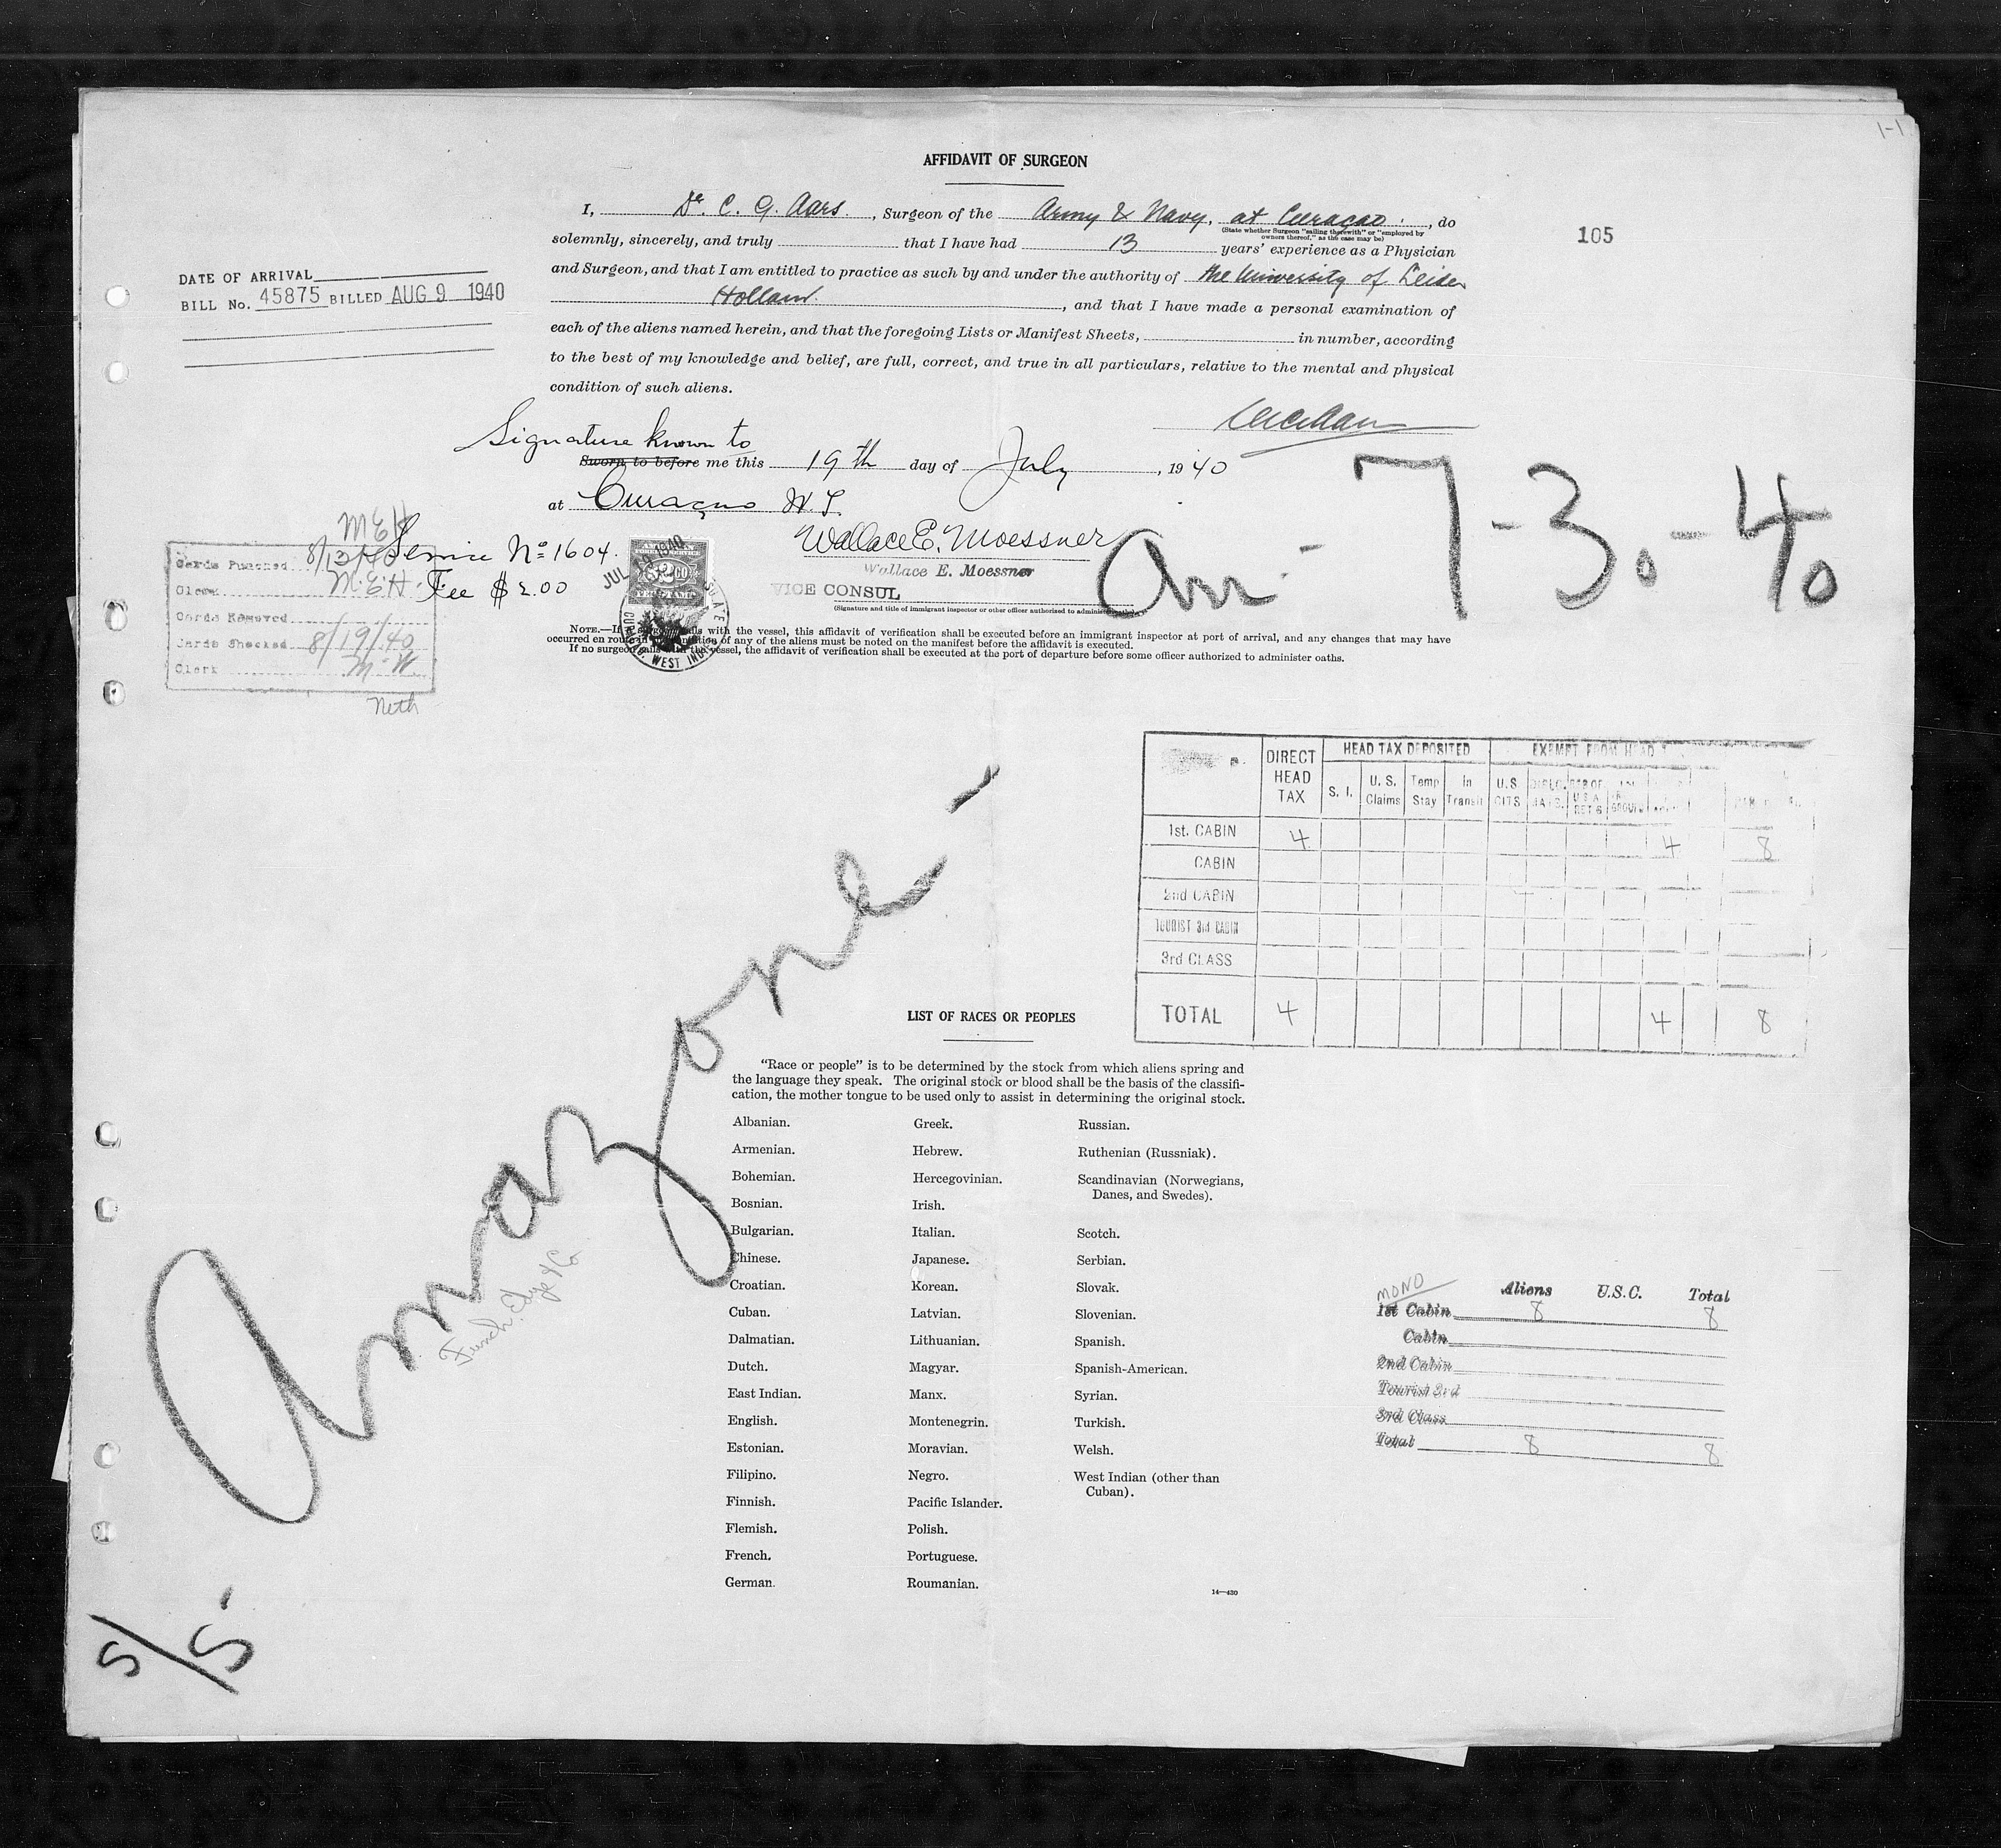 1-1
AFFIDAVIT OF SURGEON
I, Dr. C. G. Aars. , Surgeon of the Army & Navy, at Curaçao. , do
(State whether Surgeon "sailing therewith" or "employed by
owners thereof," as the case may be)
solemnly, sincerely, and truly that I have had 13 years' experience as a Physician
and Surgeon, and that I am entitled to practice as such by and under the authority of the University of Leiden
Holland. , and that I have made a personal examination of
each of the aliens named herein, and that the foregoing Lists or Manifest Sheets, in number, according
to the best of my knowledge and belief, are full, correct, and true in all particulars, relative to the mental and physical
condition of such aliens.
105
DATE OF ARRIVAL
BILL No. 45875 BILLED AUG 9 1940
Signature known to
Sworn to before me this 19th day of July , 1940
at Curaçao W.I.
Wallace E. Moessner
Wallace E. Moessner
VICE CONSUL
(Signature and title of immigrant inspector or other officer authorized to administer
Service Nº 1604.
Fee $2.00
JUL 19 1940
AMERICAN
FOREIGN SERVICE
$2.00
FEE STAMP
WEST INDIES
Arr - 7-30-40
M E H
Cards Punched 8/13/40
Clerk M.E.H.
Cards Removed
Cards Checked 8/19/40
Clerk M. W.
Neth
NOTE.—If a surgeon sails with the vessel, this affidavit of verification shall be executed before an immigrant inspector at port of arrival, and any changes that may have
occurred en route in the condition of any of the aliens must be noted on the manifest before the affidavit is executed.
If no surgeon sails with the vessel, the affidavit of verification shall be executed at the port of departure before some officer authorized to administer oaths.
DIRECT HEAD TAX HEAD TAX DEPOSITED EXEMPT FROM HEAD
S. I. U. S. Claims Temp Stay In Transit U.S CITS
1st. CABIN 4 4 8
CABIN
2nd CABIN
TOURIST 3rd CABIN
3rd CLASS
TOTAL 4 4 8
Amazone -
French Edye & Co
S/S.
LIST OF RACES OR PEOPLES
"Race or people" is to be determined by the stock from which aliens spring and
the language they speak. The original stock or blood shall be the basis of the classifi-
cation, the mother tongue to be used only to assist in determining the original stock.
Albanian. Greek. Russian.
Armenian. Hebrew. Ruthenian (Russniak).
Bohemian. Hercegovinian. Scandinavian (Norwegians,
Danes, and Swedes).
Bosnian. Irish.
Bulgarian. Italian. Scotch.
Chinese. Japanese. Serbian.
Croatian. Korean. Slovak.
Cuban. Latvian. Slovenian.
Dalmatian. Lithuanian. Spanish.
Dutch. Magyar. Spanish-American.
East Indian. Manx. Syrian.
English. Montenegrin. Turkish.
Estonian. Moravian. Welsh.
Filipino. Negro. West Indian (other than
Cuban).
Finnish. Pacific Islander.
Flemish. Polish.
French. Portuguese.
German. Roumanian.
14—430
MONO Aliens U.S.C. Total
1st Cabin 8 8
Cabin
2nd Cabin
Tourist 3rd
3rd Class
Total 8 8